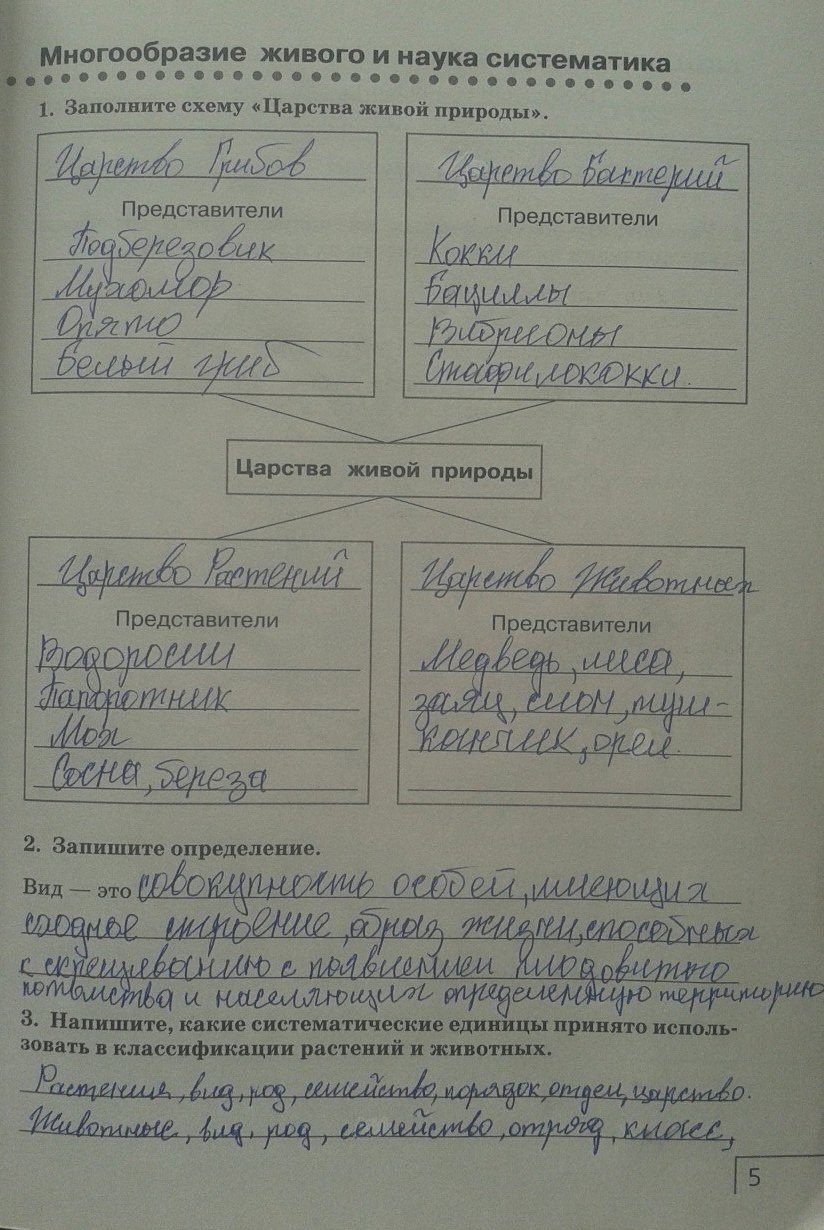 Многообразие живого и наука систематика
1. Заполните схему «Царства живой природы».
Царство Грибов
Представители
Подберезовик
Мухомор
Опята
Белый гриб
Царство Бактерий
Представители
Кокки
Бациллы
Вибрионы
Стафилококки.
Царства живой природы
Царство Растений
Представители
Водоросли
Папоротник
Мох
Сосна, береза
Царство Животных
Представители
Медведь, лиса,
заяц, слон, туш-
канчик, орел.
2. Запишите определение.
Вид — это совокупность особей, имеющих
сходное строение, образ жизни, способных
к скрещиванию с появлением плодовитого
потомства и населяющих определенную территорию
3. Напишите, какие систематические единицы принято исполь-
зовать в классификации растений и животных.
Растения, вид, род, семейство, порядок, отдел, царство.
Животные, вид, род, семейство, отряд, класс,
5